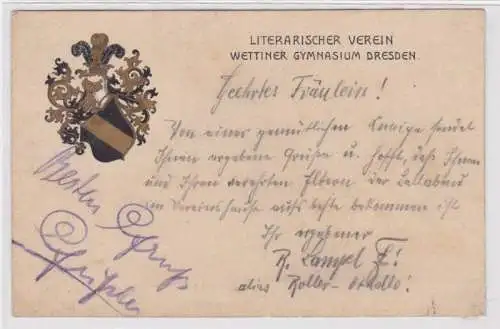 LITERARISCHER VEREIN
WETTINER GYMNASIUM DRESDEN.
Geehrtes Fräulein!
Von einer gemütlichen Kneipe sendet
Ihnen ergebene Grüße u. hofft, daß Ihnen
und Ihren verehrten Eltern der
im Vereinshause aufs beste bekommen ist
Ihr ergebener
R. Lampel
alias Roller-Othello!
Besten Gruß